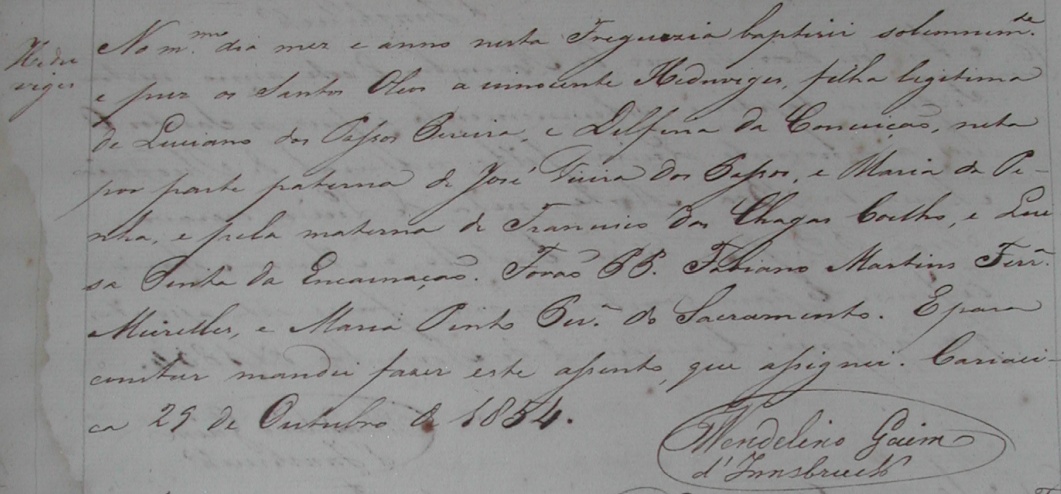 Hedu
viges
No m.mo dia mez e anno nesta Freguezia baptisei solemnem.de
e puz os Santos Oleos a innocente Heduviges, filha legitima
de Luciano dos Passos Pereira, e Delfina da Conceição, neta
por parte paterna de José Vieira dos Passos, e Maria da Pe-
nha, e pela materna de Francisco das Chagas Coelho, e Lui
sa Pinta da Encarnação. Forão PP. Fabiano Martins Ferr.a
Meirelles, e Maria Pinto Per.a do Sacramento. E para
constar mandei fazer este assento, que assignei. Cariaci-
ca 29 de Outubro de 1854.
Wendelino Gaim
d'Innsbruck